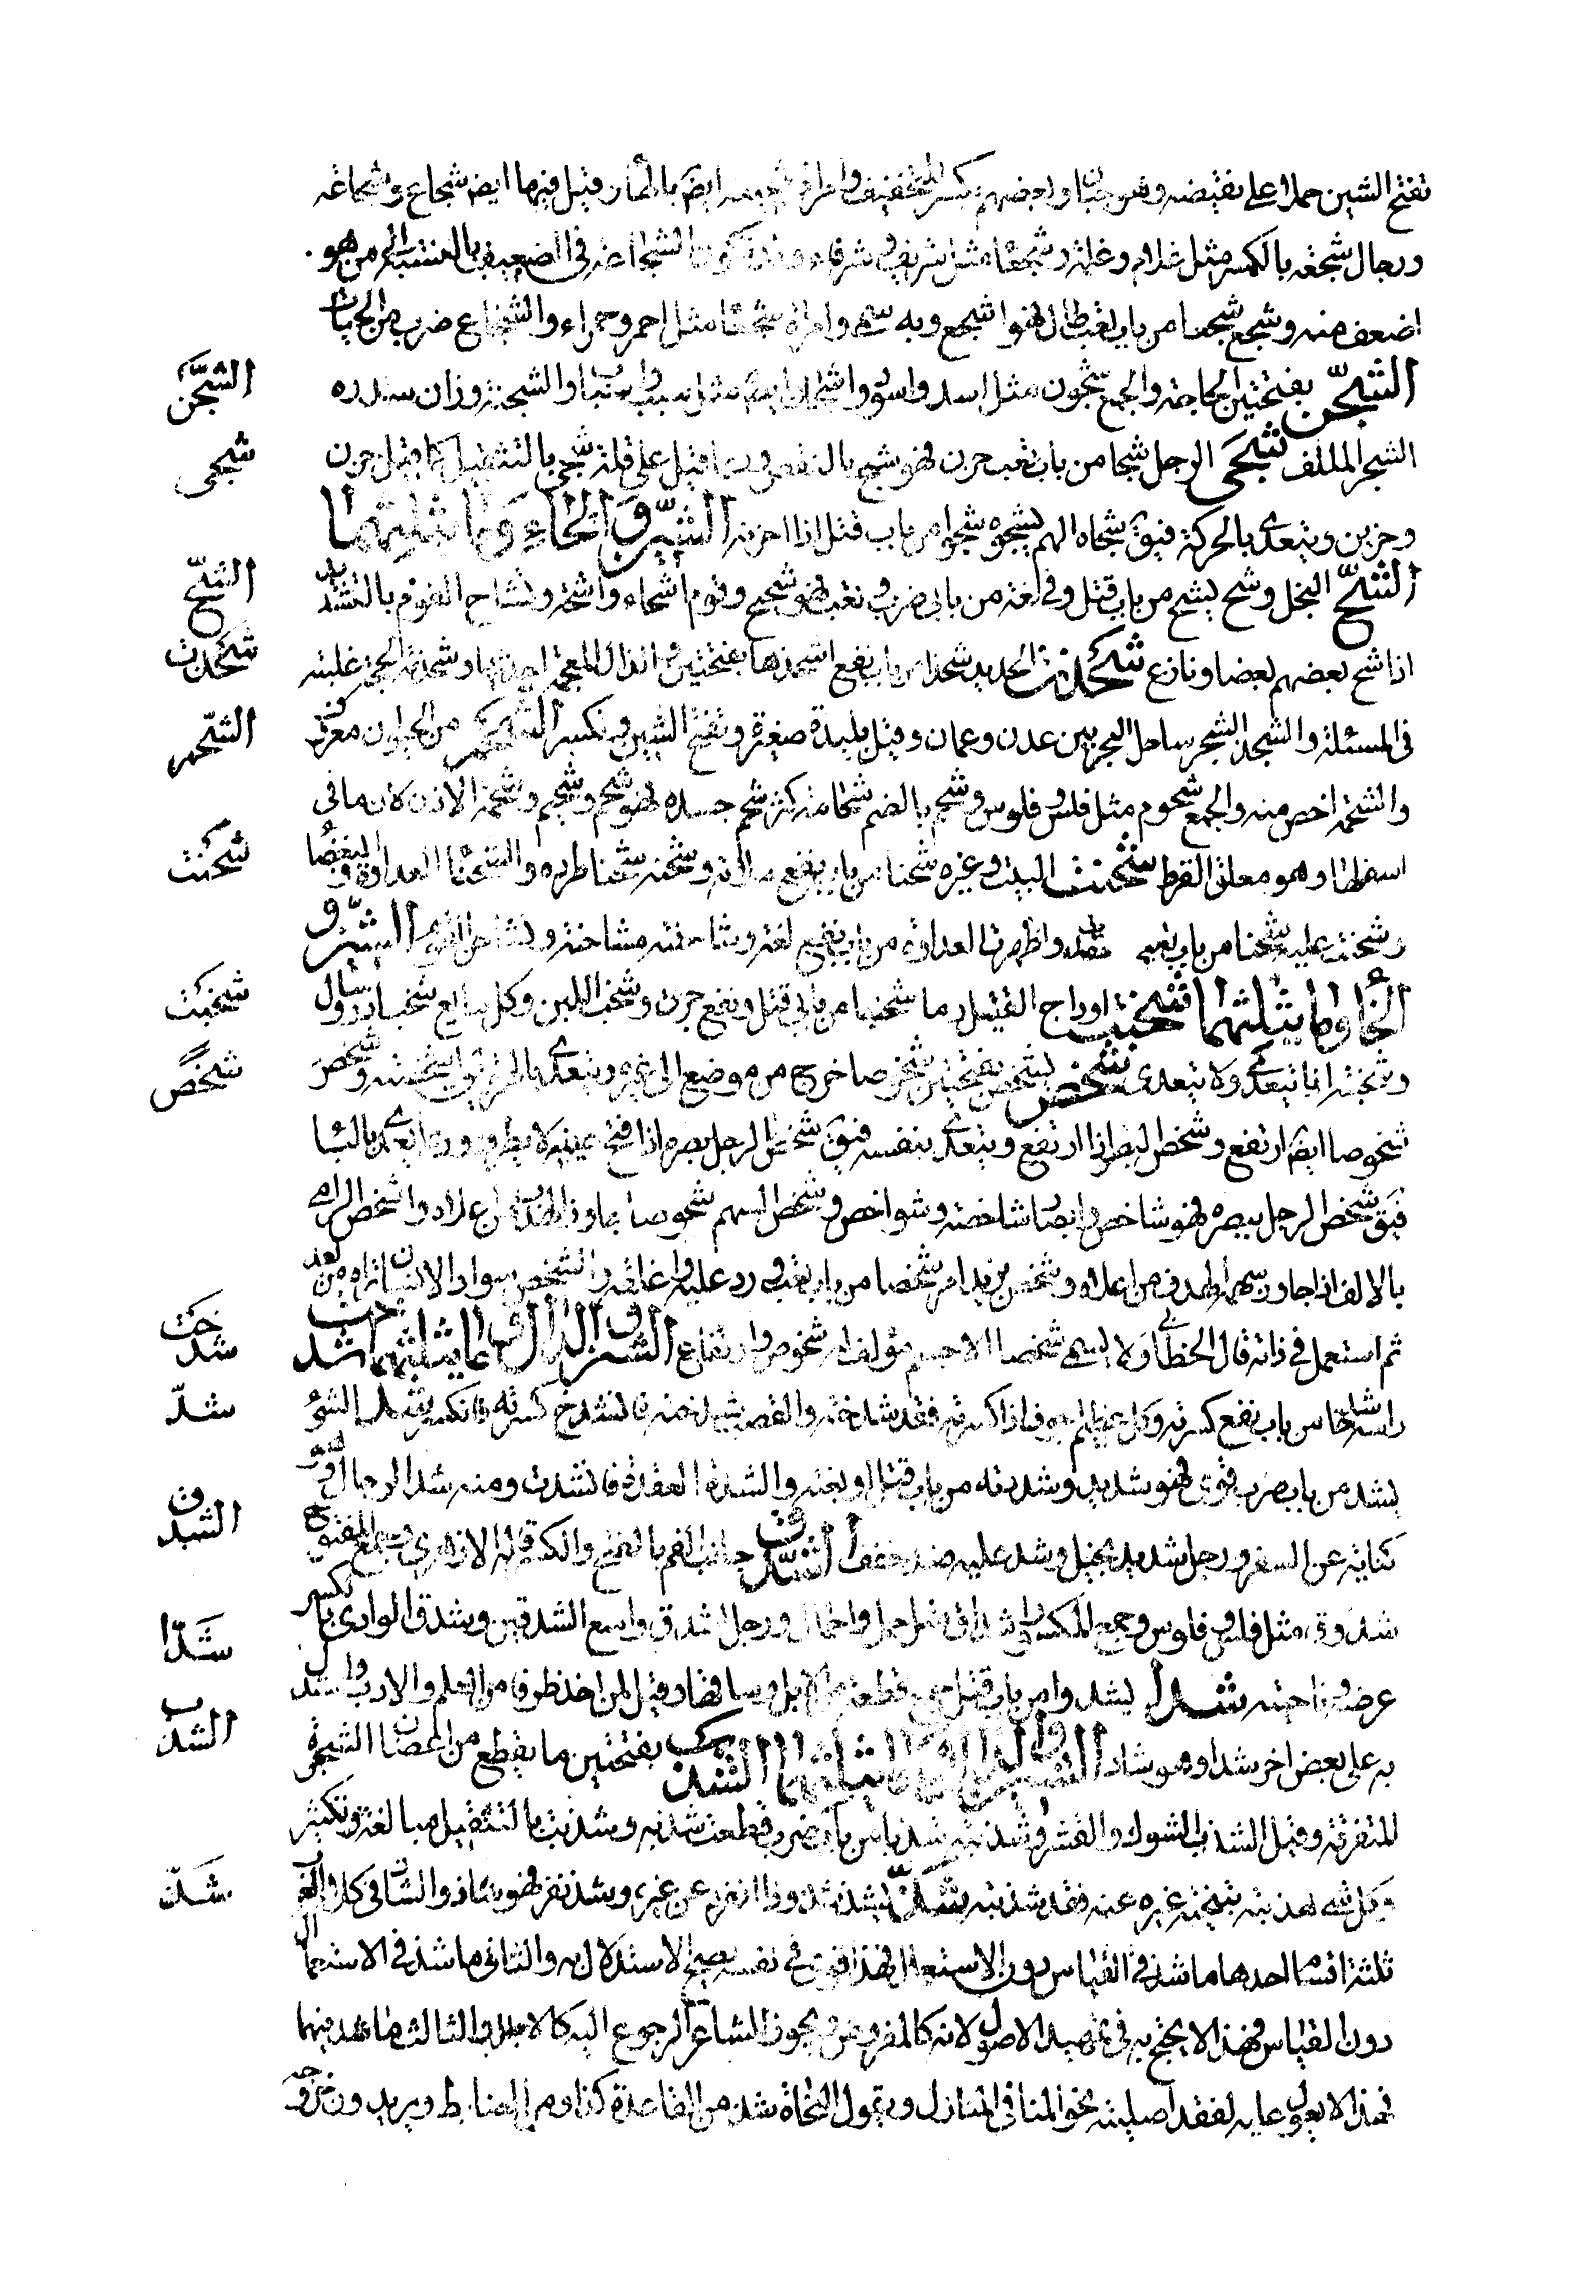 تفتح الشين حملا على نقيضه وهو جبان وبعضهم يكسر للتخفيف وامراة شجيعة ايضا بالهاء وقيل فيهما ايضا شجاع وشجاعة
ورجال شجعة بالكسر مثل غلام وغلمة وشجعا مثل شريف وشرفاء وقد تكون الشجاعة في الضعيف بالنسبة الى من هو
اضعف منه وشجع شجعا من باب تعب طال فهو اشجع وبه سمي وامراة شجعا مثل احمر وحمراء والشجاع ضرب من الحيات
الشجن بفتحتين الحاجة والجمع شجون مثل اسد واسود واشجان ايضا مثل سبب واسباب والشجنة وزان سدرة
الشجن
الشجر الملتف شجى الرجل شجا من باب تعب حزن فهو شج بالنقص وربما قيل على قلة شجي بالتثقيل كما قيل حزن
شجى
وحزين ويتعدى بالحركة فيق شجاه الهم يشجوه شجوا من باب قتل اذا احزنه الشين والحاء وما يثلثهما
الشح البخل وشح يشح من باب قتل وفي لغة من بابي ضرب وتعب فهو شحيح وقوم اشحاء واشحة وتشاح القوم بالتشديد
الشح
اذا شح بعضهم بعضا ونازع شحذت الحديد شحذا من باب نفع اشحذها بفتحتين والذال المعجمة احددتها وشحذته الحجة غلبته
شحذت
في المسئلة والشحذ الشحر ساحل البحر بين عدن وعمان وقيل بليدة صغيرة وتفتح الشين وتكسر الشحم من الحيوان معروف
الشحم
والشحمة اخص منه والجمع شحوم مثل فلس وفلوس وشحم بالضم شحامة كثر شحم جسده فهو شحم وشحيم وشحمة الاذن لان ما في
اسفلها وهو معلق القرط شحنت البيت وغيره شحنا من باب نفع ملاته وشحنه شحنا طرده والشحنا العداوة والبغضا
شحنت
وشحنت عليه شحنا من باب تعب حقدت واظهرت العداوة من باب نفع لغة وشاحنته مشاحنة وتشاحن القوم الشين و
الخا وما يثلثهما شخبت اوداج القتيل دما شخبا من بابي قتل ونفع جرت وشخب اللبن وكل مايع شخبا در وسال
شخبت
وشخبته انا يتعدى ولا يتعدى شخص يشخص بفتحتين شخوصا خرج من موضع الى غيره ويتعدى بالهمزة فيق اشخصته وشخص
شخص
شخوصا ايضا ارتفع وشخص البصر اذا ارتفع ويتعدى بنفسه فيق شخص الرجل بصره اذا فتح عينيه لا يطرف وربما يعدى بالبا
فيق شخص الرجل ببصره فهو شاخص وابصار شاخصة وشواخص وشخص السهم شخوصا جاوز الهدف من اعلاه واشخص الرامي
بالالف اذا جاوز سهمه الهدف من اعلاه وشخص يزيد امر شخصا من باب تعب ورد عليه واغلقه والشخص سواد الانسان تراه من بعد
ثم استعمل في ذاته قال الخطابي ولا يسمى شخصا الا جسم مؤلف له شخوص وارتفاع الشين والدال وما يثلثهما شدخت
شدخت
راسه شدخا من باب نفع كسرته وكل عظم اجوف اذا كسرته فقد شدخته والقصب شدخته فانشدخ كسرته فانكسر شد الشي
شد
يشد من باب ضرب قوي فهو شديد وشددته من باب قتل اوثقته والشدة العقدة فانشدت ومنه شد الرحال وهو
كناية عن السفر ورجل شديد بخيل وشد عليه ضد خفف الشدق جانب الفم بالفتح والكسر قاله الازهري وجمع المفتوح
الشدق
شدوق مثل فلس وفلوس وجمع المكسور اشداق مثل حمل واحمال ورجل اشدق واسع الشدقين وشدق الوادي بالكسر
عرضه وناحيته شدا يشدوا من باب قتل جمع قطعة من الابل وساقها وقيل لمن اخذ طرفا من العلم والادب واستدل
شدا
به على بعض اخر شدا وهو شاد الشين والذال وما يثلثهما الشذب بفتحتين ما يقطع من اغصان الشجرة
الشذب
المتفرقة وقيل الشذب الشوك والقشر وشذبته شذبا من باب ضرب قطعت شذبه وشذبت بالتثقيل مبالغة وتكثير
وكل شي هذبته بتنحية غيره عنه فقد شذبته شذ يشذ شذوذا انفرد عن غيره وشذ نفر فهو شاذ والشاذ في كلام العرب
شذ
ثلثة اقسام احدها ما شذ في القياس دون الاستعمال فهذا قوي في نفسه يصح الاستدلال به والثاني ما شذ في الاستعمال
دون القياس فهذا لا يحتج به في تمهيد الاصول لانه كالمرفوض ويجوز للشاعر الرجوع اليه كالاجلل والثالث ما شذ فيهما
فهذا لا يعول عليه لفقد اصليته نحو المنا في المنازل ويقول النحاة شذ من القاعدة كذا ومن الضابط ويريدون خروجه